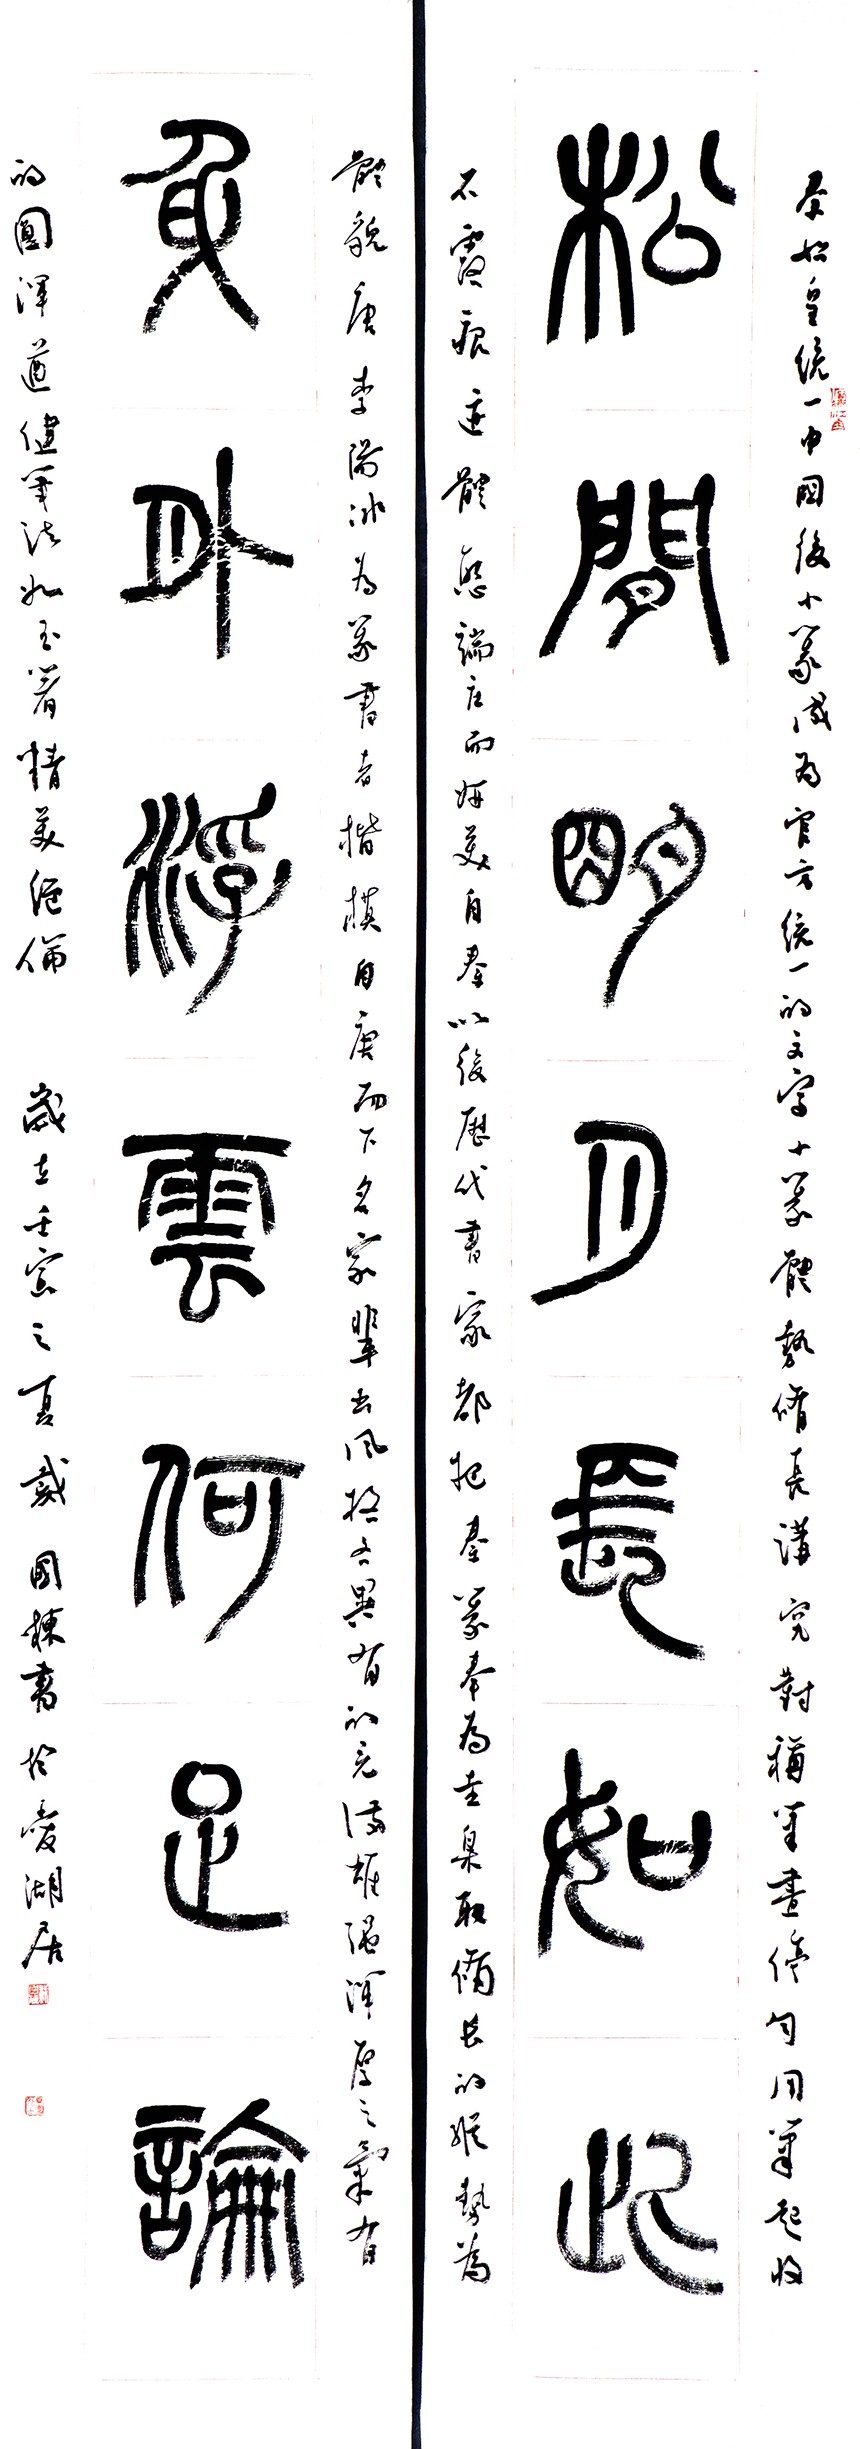 秦始皇統一中國後小篆成為官方統一的文字小篆體勢脩長講究對稱筆畫停勻用筆起收
松間明月長如此
不露痕迹體態端庄而妍美自秦以後歷代書家都把秦篆奉為圭臬取脩長的姿勢為
體貌唐李陽冰為篆書者楷模自唐而下名家輩出風格各異有的充滿雄強渾厚之氣有
身外浮雲何足論
的圓渾遒健筆法如玉箸精美絕倫 歲在壬寅之夏戴國棟書於愛湖居